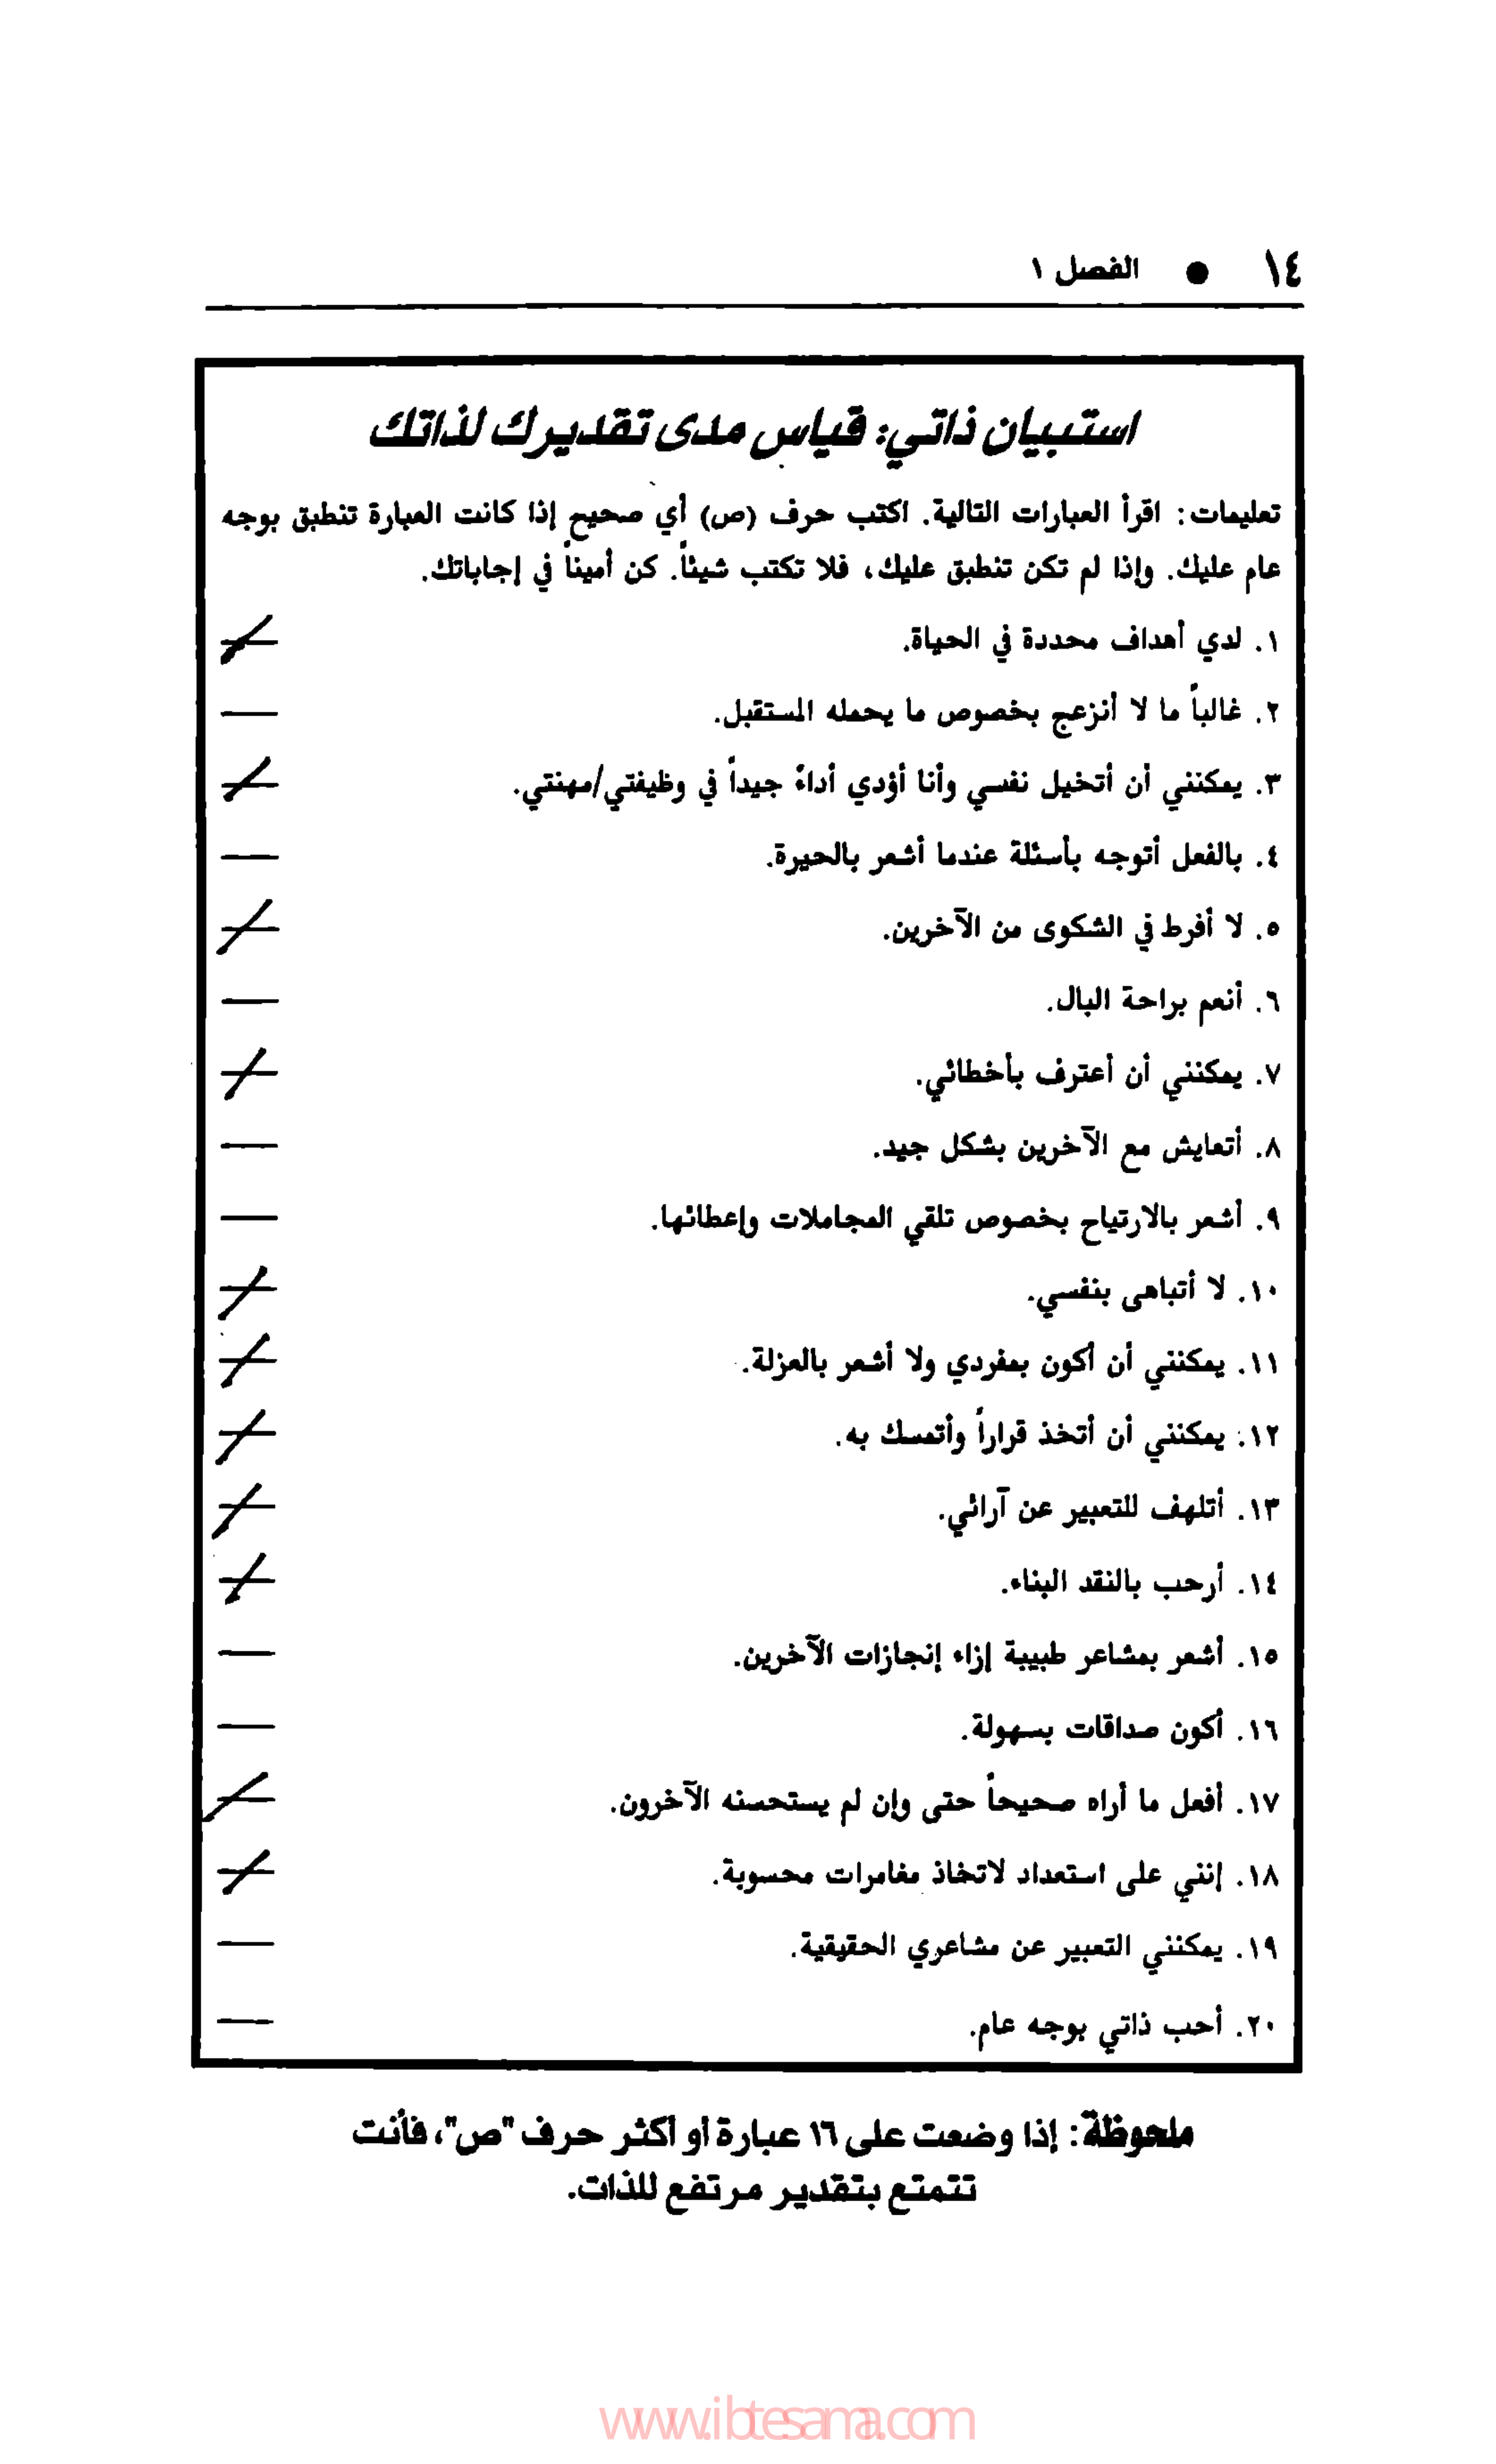 ١٤ ● الفصل ١
استبيان ذاتي: قياس مدى تقديرك لذاتك
تعليمات: اقرأ العبارات التالية. اكتب حرف (ص) أي صحيح إذا كانت العبارة تنطبق بوجه
عام عليك. وإذا لم تكن تنطبق عليك، فلا تكتب شيئاً. كن أميناً في إجاباتك.
١. لدي أهداف محددة في الحياة.
٢. غالباً ما لا أنزعج بخصوص ما يحمله المستقبل.
٣. يمكنني أن أتخيل نفسي وأنا أؤدي أداءً جيداً في وظيفتي/مهنتي.
٤. بالفعل أتوجه بأسئلة عندما أشعر بالحيرة.
٥. لا أفرط في الشكوى من الآخرين.
٦. أنعم براحة البال.
٧. يمكنني أن أعترف بأخطائي.
٨. أتعايش مع الآخرين بشكل جيد.
٩. أشعر بالارتياح بخصوص تلقي المجاملات وإعطائها.
١٠. لا أتباهى بنفسي.
١١. يمكنني أن أكون بمفردي ولا أشعر بالعزلة.
١٢. يمكنني أن أتخذ قراراً وأتمسك به.
١٣. أتلهف للتعبير عن آرائي.
١٤. أرحب بالنقد البناء.
١٥. أشعر بمشاعر طيبة إزاء إنجازات الآخرين.
١٦. أكون صداقات بسهولة.
١٧. أفعل ما أراه صحيحاً حتى وإن لم يستحسنه الآخرون.
١٨. إنني على استعداد لاتخاذ مغامرات محسوبة.
١٩. يمكنني التعبير عن مشاعري الحقيقية.
٢٠. أحب ذاتي بوجه عام.
ملحوظة: إذا وضعت على ١٦ عبارة أو أكثر حرف "ص"، فأنت
تتمتع بتقدير مرتفع للذات.
www.ibtesama.com